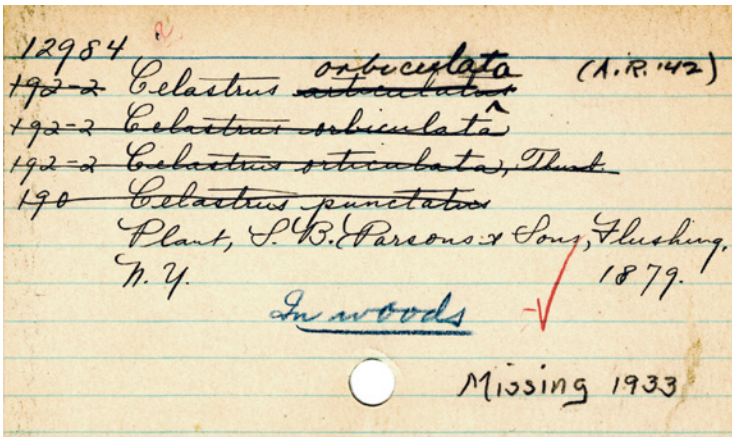 12984 2
orbiculata (A.R. '42)
192-2 Celastrus articulatus
192-2 Celastrus orbiculata
192-2 Celastrus orticulata, Thunb.
190 Celastrus punctatus
Plant, S. B. Parsons & Sons, Flushing,
N. Y. 1879.
In woods
Missing 1933